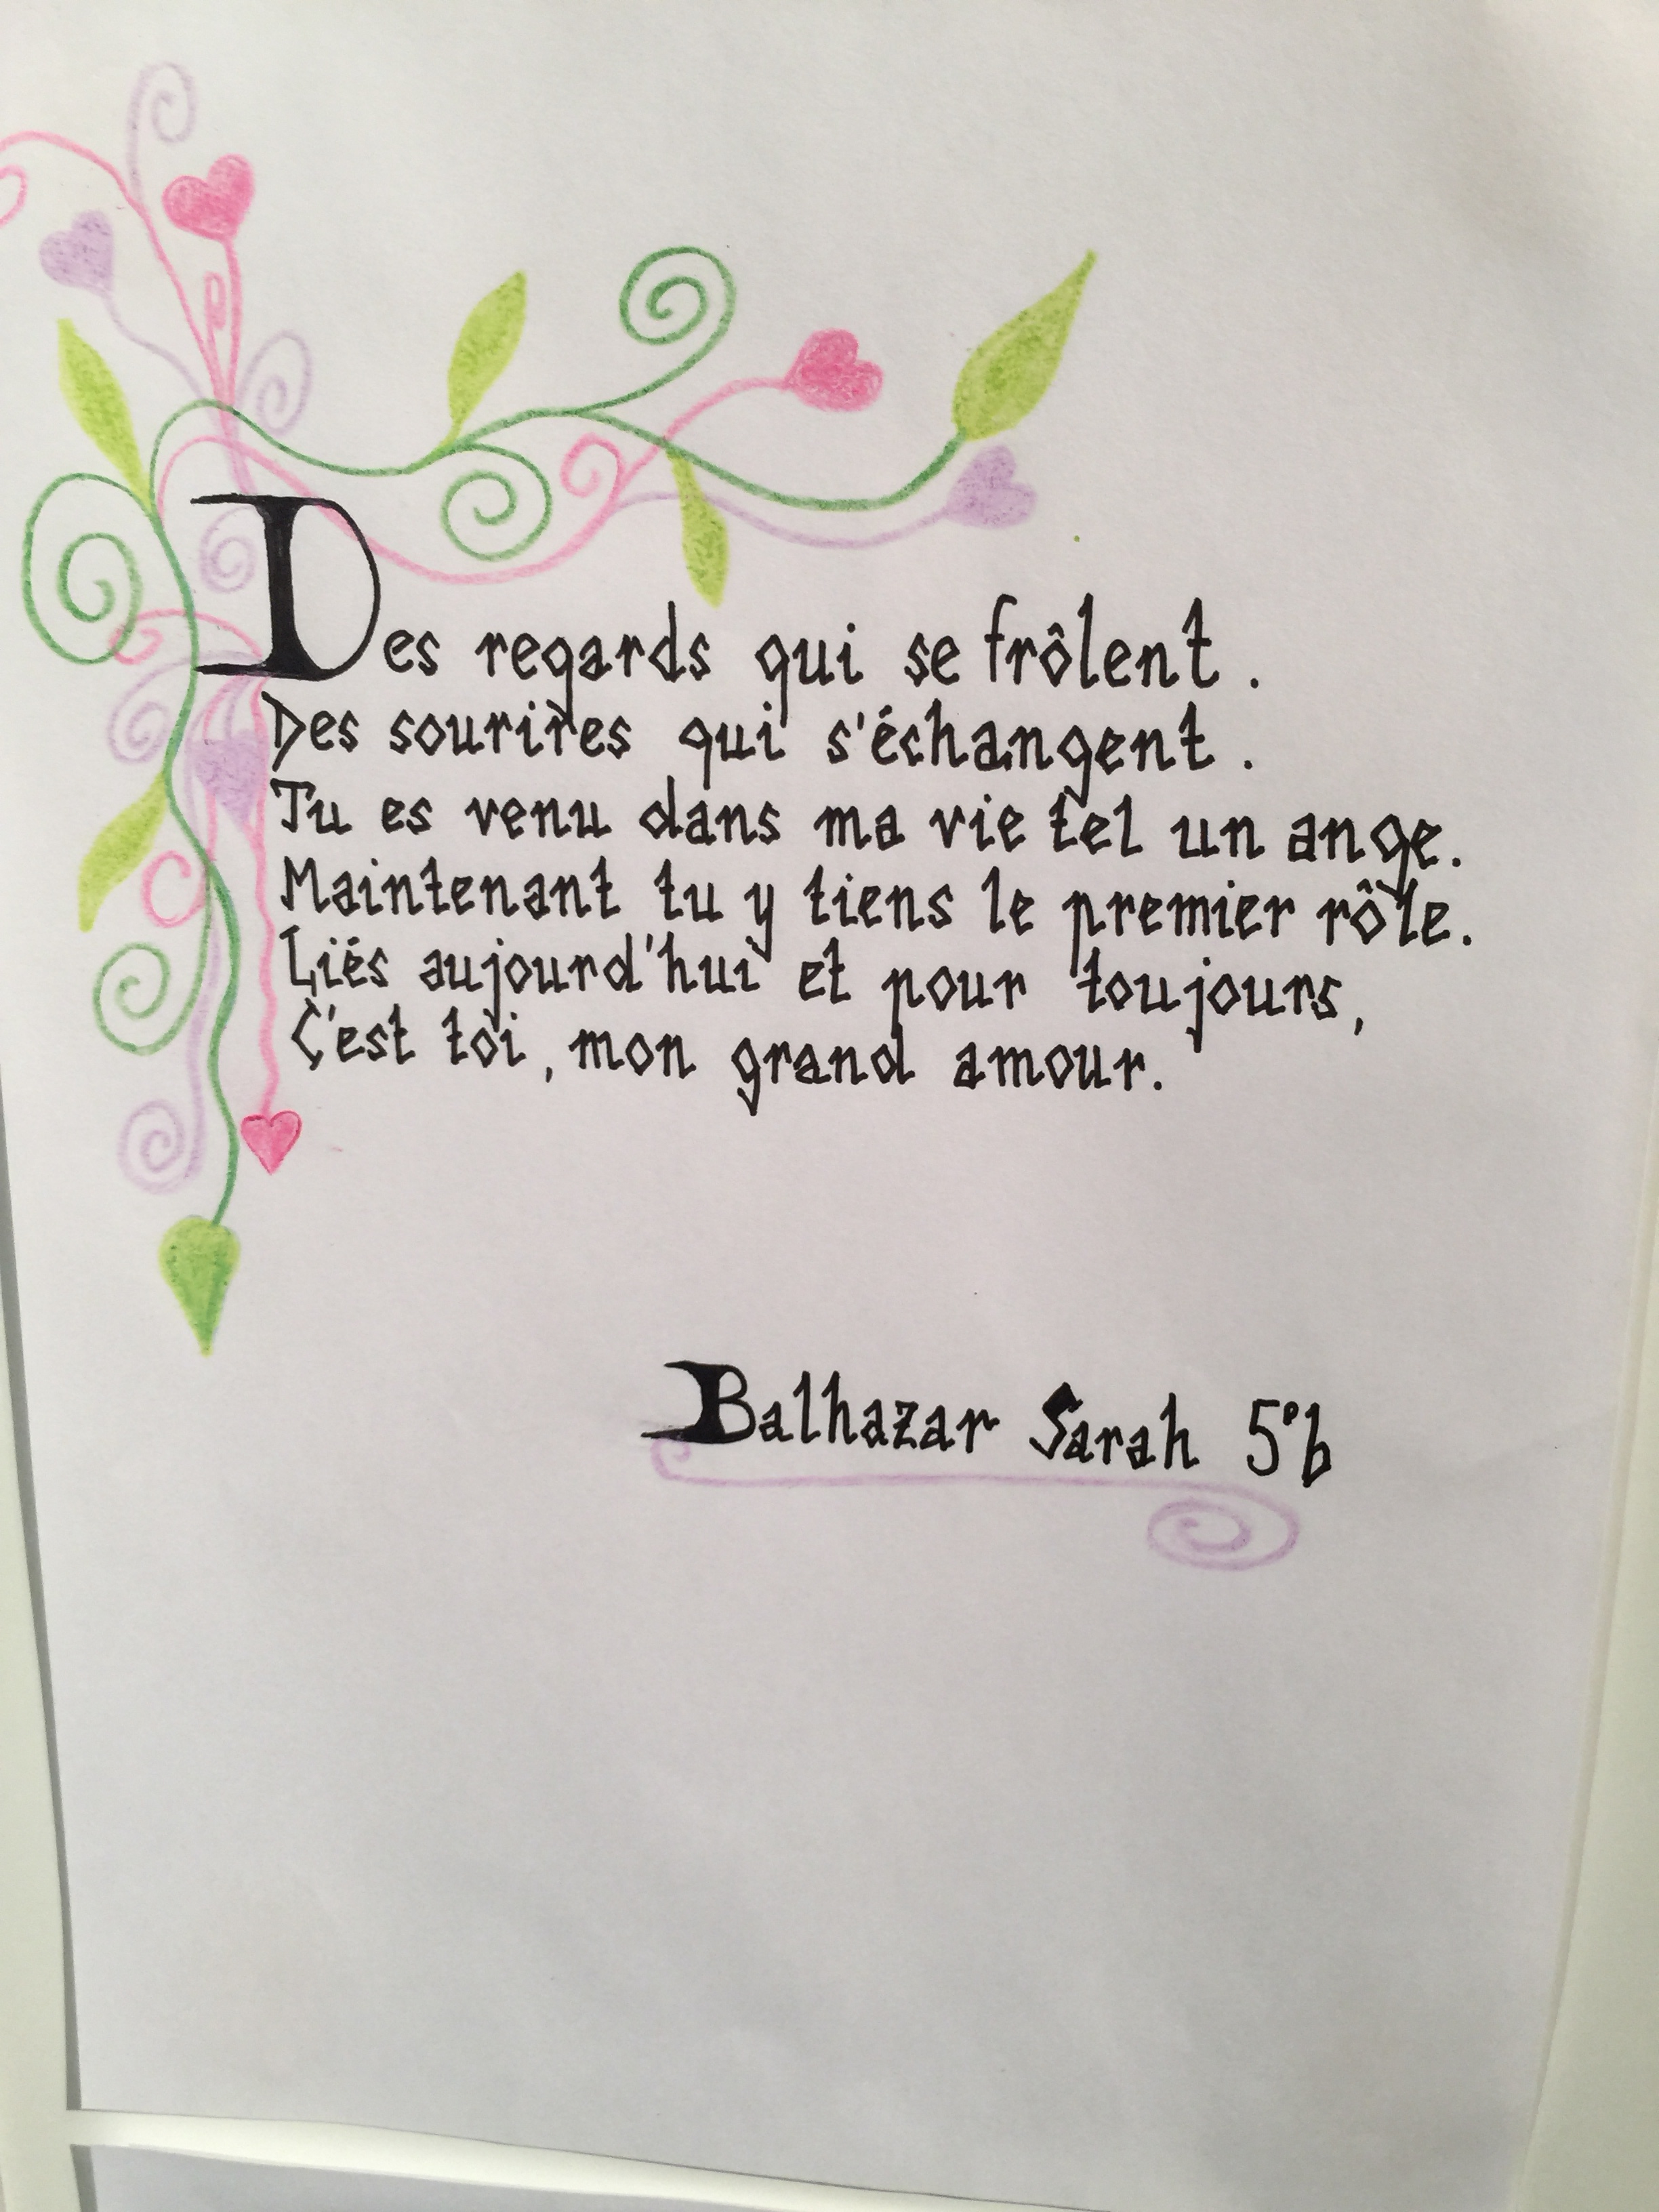 Des regards qui se frôlent.
Des sourires qui s'échangent.
Tu es venu dans ma vie tel un ange.
Maintenant tu y tiens le premier rôle.
Liés aujourd'hui et pour toujours,
C'est toi, mon grand amour.
Balhazar Sarah 5°b